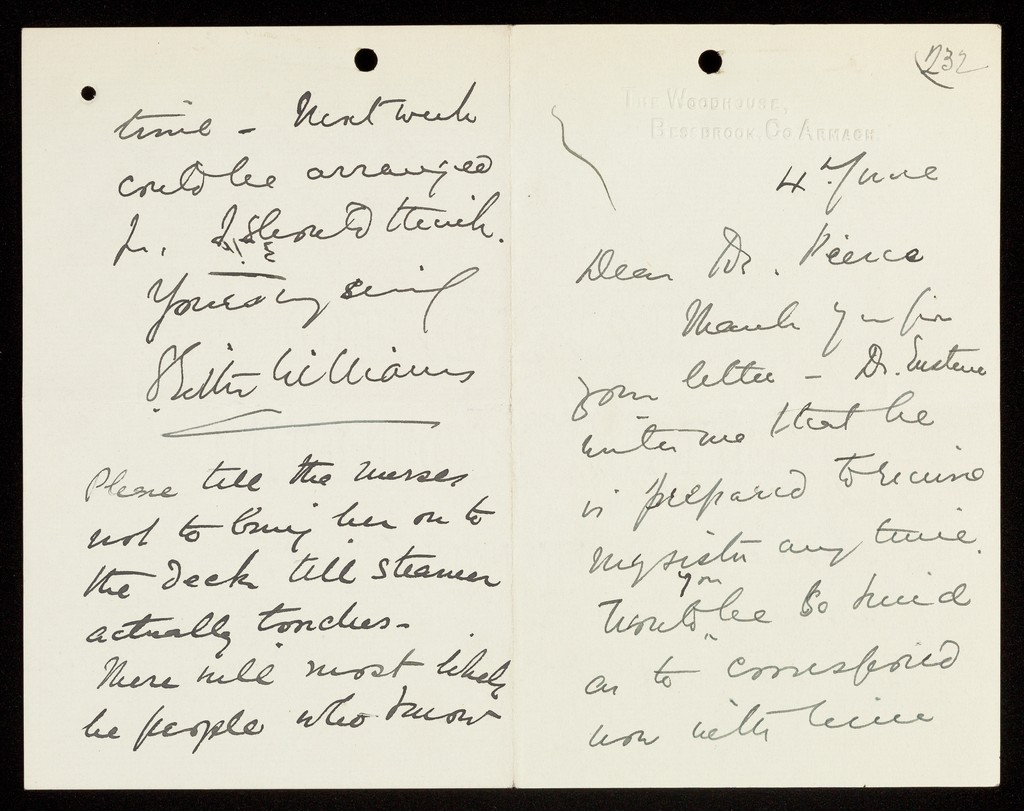 232
THE WOODHOUSE,
BESSBROOK, CO. ARMAGH.
4th June
Dear Dr. Pierce
Thank you for
your letter – Dr. Eustace
writes me that he
is prepared to receive
my sister any time.
Would you be so kind
as to correspond
now with him
time – Next week
could be arranged
for, I should think.
Yours very sincly
Williams
Please tell the nurses
not to bring her on to
the deck till steamer
actually touches –
There will most likely
be people who know